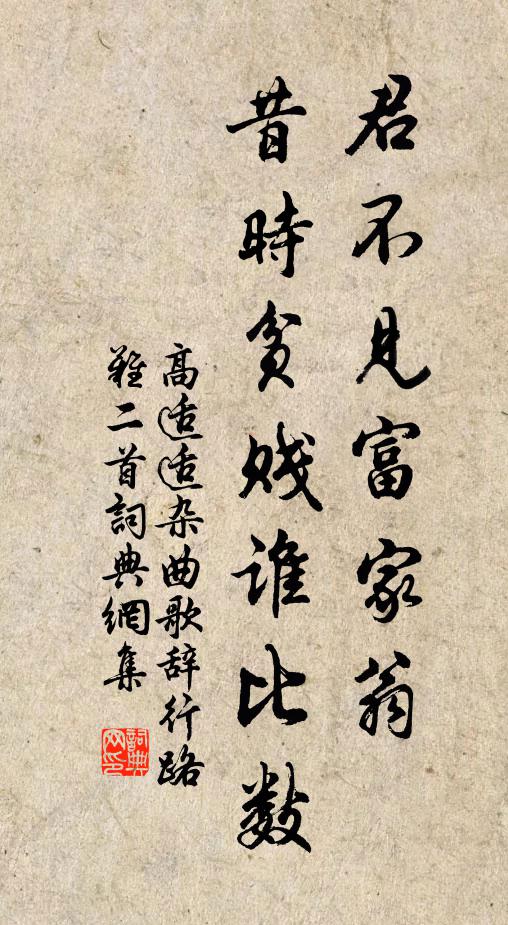 君不見富家翁
昔時貧賤誰比數
高适适杂曲歌辞行路
難二首詞典網集
詞典
网印